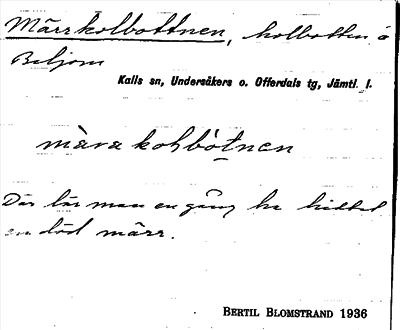 Märrkolbottnen, kolbotten å
Beljom
Kalls sn, Undersåkers o. Offerdals tg, Jämtl. l.
màrakoḷbòtnen
Där lär man en gång ha hittat
en död märr.
BERTIL BLOMSTRAND 1936